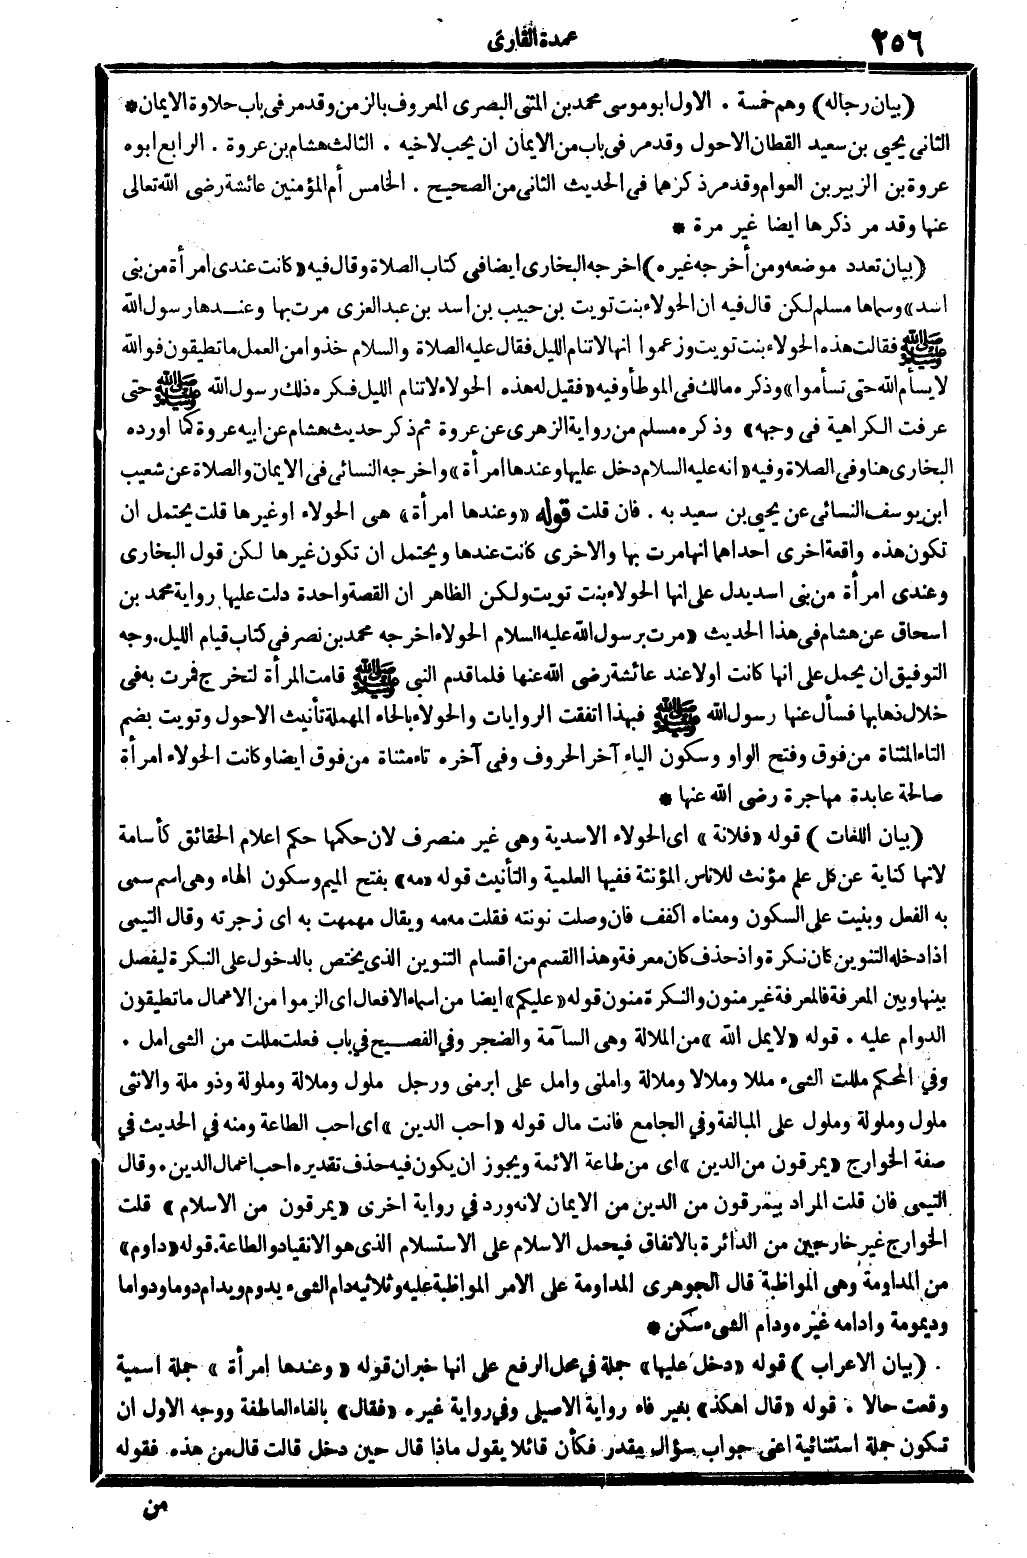 ٢٥٦
عمدة القارئ
(بيان رجاله) وهم خمسة . الاول ابو موسى محمد بن المثنى البصرى المعروف بالزمن وقد مر فى باب حلاوة الايمان *
الثانى يحيى بن سعيد القطان الاحول وقد مر فى باب من الايمان ان يحب لاخيه . الثالث هشام بن عروة . الرابع ابوه
عروة بن الزبير بن العوام وقد مر ذكرهما فى الحديث الثانى من الصحيح . الخامس أم المؤمنين عائشة رضى الله تعالى
عنها وقد مر ذكرها ايضا غير مرة *
(بيان تعدد موضعه ومن أخرجه غيره) اخرجه البخارى ايضا فى كتاب الصلاة وقال فيه «كانت عندى امرأة من بنى
اسد» وسماها مسلم لكن قال فيه ان الحولاء بنت تويت بن حبيب بن اسد بن عبد العزى مرت بها وعنــدها رسول الله
ﷺ فقالت هذه الحولاء بنت تويت وزعموا انها لا تنام الليل فقال عليه الصلاة والسلام خذوا من العمل ما تطيقون فوالله
لا يسأم الله حتى تسأموا» وذكره مالك فى الموطأ وفيه «فقيل له هذه الحولاء لا تنام الليل فكره ذلك رسول الله ﷺ حتى
عرفت الكراهية فى وجهه» وذكره مسلم من رواية الزهرى عن عروة ثم ذكر حديث هشام عن ابيه عروة كما اورده
البخارى هنا وفى الصلاة وفيه «انه عليه السلام دخل عليها وعندها امرأة» واخرجه النسائى فى الايمان والصلاة عن شعيب
ابن يوسف النسائى عن يحيى بن سعيد به . فان قلت قوله «وعندها امرأة» هى الحولاء او غيرها قلت يحتمل ان
تكون هذه واقعة اخرى احداهما انها مرت بها والاخرى كانت عندها ويحتمل ان تكون غيرها لكن قول البخارى
وعندى امرأة من بنى اسد يدل على انها الحولاء بنت تويت ولكن الظاهر ان القصة واحدة دلت عليها رواية محمد بن
اسحاق عن هشام فى هذا الحديث «مرت برسول الله عليه السلام الحولاء اخرجه محمد بن نصر فى كتاب قيام الليل . وجه
التوفيق ان يحمل على انها كانت اولا عند عائشة رضى الله عنها فلما قدم النبى ﷺ قامت المرأة لتخرج فمرت به فى
خلال ذهابها فسأل عنها رسول الله ﷺ فبهذا اتفقت الروايات والحولاء بالحاء المهملة تأنيث الاحول وتويت بضم
التاء المثناة من فوق وفتح الواو وسكون الياء آخر الحروف وفى آخره تاء مثناة من فوق ايضا وكانت الحولاء امرأة
صالحة عابدة مهاجرة رضى الله عنها *
(بيان اللغات) قوله «فلانة» اى الحولاء الاسدية وهى غير منصرف لان حكمها حكم اعلام الحقائق كأسامة
لانها كناية عن كل علم مؤنث للاناس المؤنثة ففيها العلمية والتأنيث قوله «مه» بفتح الميم وسكون الهاء وهى اسم سمى
به الفعل وبنيت على السكون ومعناه اكفف فان وصلت نونته فقلت مه مه ويقال مهمهت به اى زجرته وقال التيمى
اذا دخله التنوين كان نكرة واذ حذف كان معرفة وهذا القسم من اقسام التنوين الذى يختص بالدخول على النكرة ليفصل
بينها وبين المعرفة فالمعرفة غير منون والنكرة منون قوله «عليكم» ايضا من اسماء الافعال اى الزموا من الاعمال ما تطيقون
الدوام عليه . قوله «لا يمل الله» من الملالة وهى السآمة والضجر وفي الفصــيح في باب فعلت مللت من الشى امل .
وفي المحكم مللت الشىء مللا وملالا وملالة واملنى وامل على ابرمنى ورجل ملول وملالة وملولة وذو ملة والانثى
ملول وملولة وملول على المبالغة وفي الجامع فانت مال قوله «احب الدين» اى احب الطاعة ومنه في الحديث في
صفة الخوارج «يمرقون من الدين» اى من طاعة الائمة ويجوز ان يكون فيه حذف تقديره احب اعمال الدين . وقال
التيمى فان قلت المراد بيمرقون من الدين من الايمان لانه ورد في رواية اخرى «يمرقون من الاسلام» قلت
الخوارج غير خارجين من الدائرة بالاتفاق فيحمل الاسلام على الاستسلام الذى هو الانقياد والطاعة . قوله «داوم»
من المداومة وهى المواظبة قال الجوهرى المداومة على الامر المواظبة عليه وثلاثيه دام الشىء يدوم ويدام دوما ودواما
وديمومة وادامه غيره ودام الشىء سكن *
. (بيان الاعراب) قوله «دخل عليها» جملة في محل الرفع على انها خبر ان قوله «وعندها امرأة» جملة اسمية
وقعت حالا . قوله «قال اهكذ» بغير فاء رواية الاصيلى وفي رواية غيره «فقال» بالفاء العاطفة ووجه الاول ان
تكون جملة استئنائية اعنى جواب سؤال مقدر فكأن قائلا يقول ماذا قال حين دخل قالت قال من هذه فقوله
من